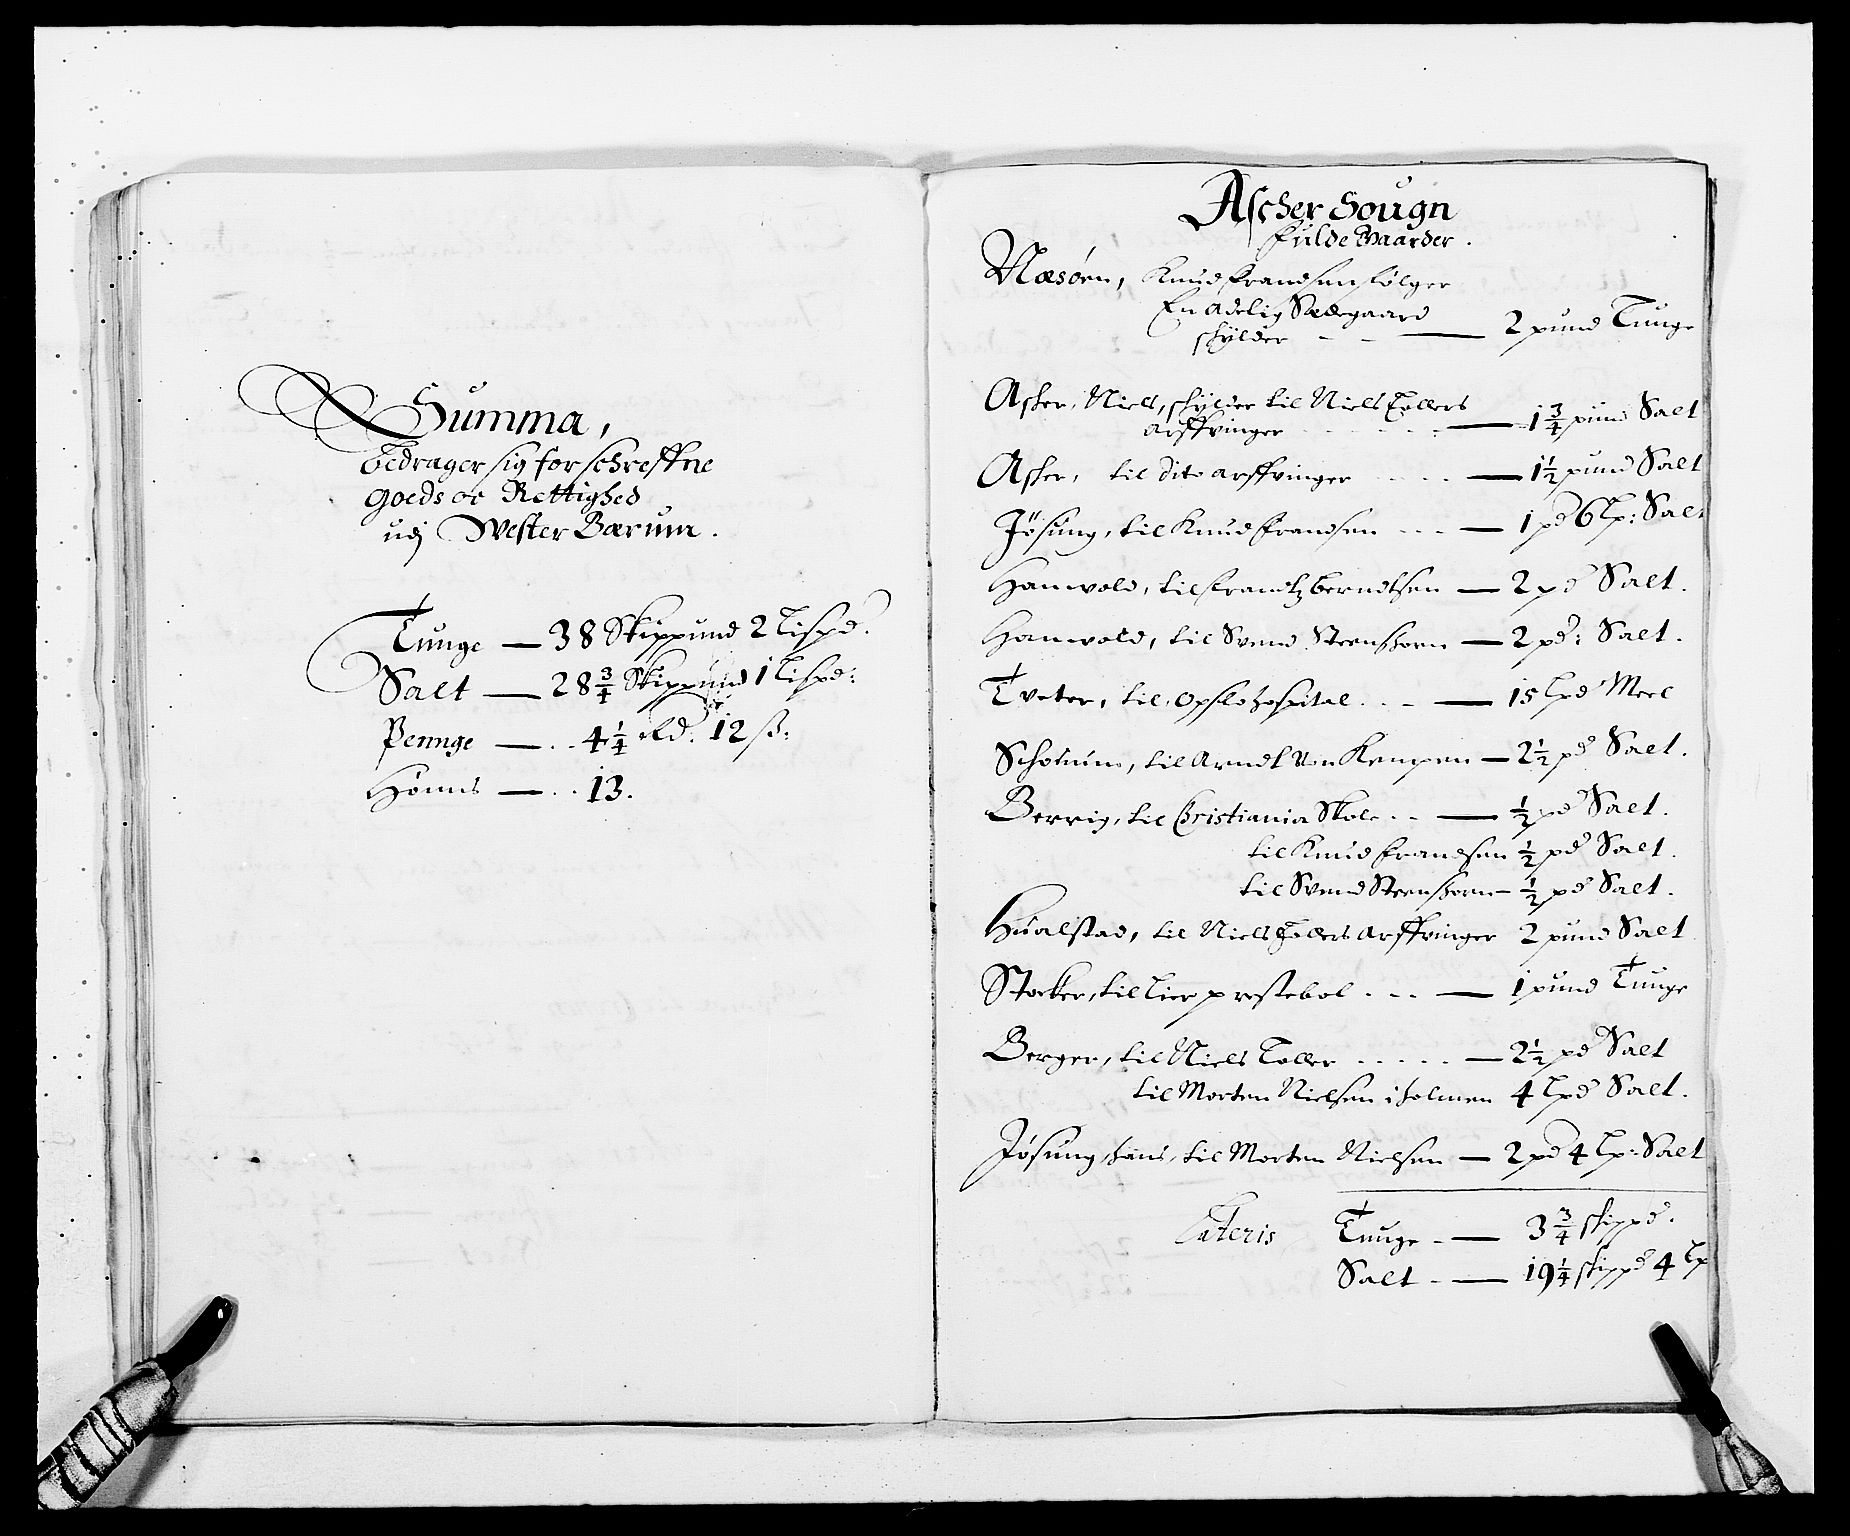 Summa,
bedrager sig forschreffne
goeds oc Rettighed
udj Wester Bærum.
Tunge — 38 Skippund 2 lispd.
Salt — 28 3/4 Skippund 1 lispd:
Pennge — .. 4 1/4 rd. 12 ß:
Hønns — .. 13.
Ascher Sougn
fulde Gaarder.
Næsøen, Knud Frandsen følger
En adelig Sædegaard
schylder - - — 2 pund Tunge
Asker, Niels, schylder til Niels Tollers
arffvinger — 1 3/4 pund Salt
Asker, til dito arffvinger — 1 1/2 pund Salt
Jøsung, til Knud Frandsen - - - — 1 pd 6 lp: Salt
Hanwold, til Frandtz Berndtsen — 2 pd Salt.
Hanwold, til Svend Steenshorn — 2 pd: Salt.
Tveter, til Opslo hospital . . - — 15 lpd Meel
Schouum, til Arndt von Kempen — 2 1/2 pd Salt.
Berrig, til Christiania Skole - - — 1/2 pd Salt.
til Knud Frandsen 1/2 pd Salt.
til Svend Steenshorn — 1/2 pd Salt.
Hualstad, til Niels Tollers arffvinger 2 pund Salt
Stocker, til Lier prestebol . - - — 1 pund Tunge
Berger, til Niels Toller - - - - - — 2 1/2 pd Salt
til Morten Nielsen i holmen 4 lpd Salt.
Jøsung, hans, til Morten Nielsen — 2 pd 4 lp: Salt
Lateris Tunge - — 3 3/4 skippd.
Salt - — 19 1/4 skippd 4 lp